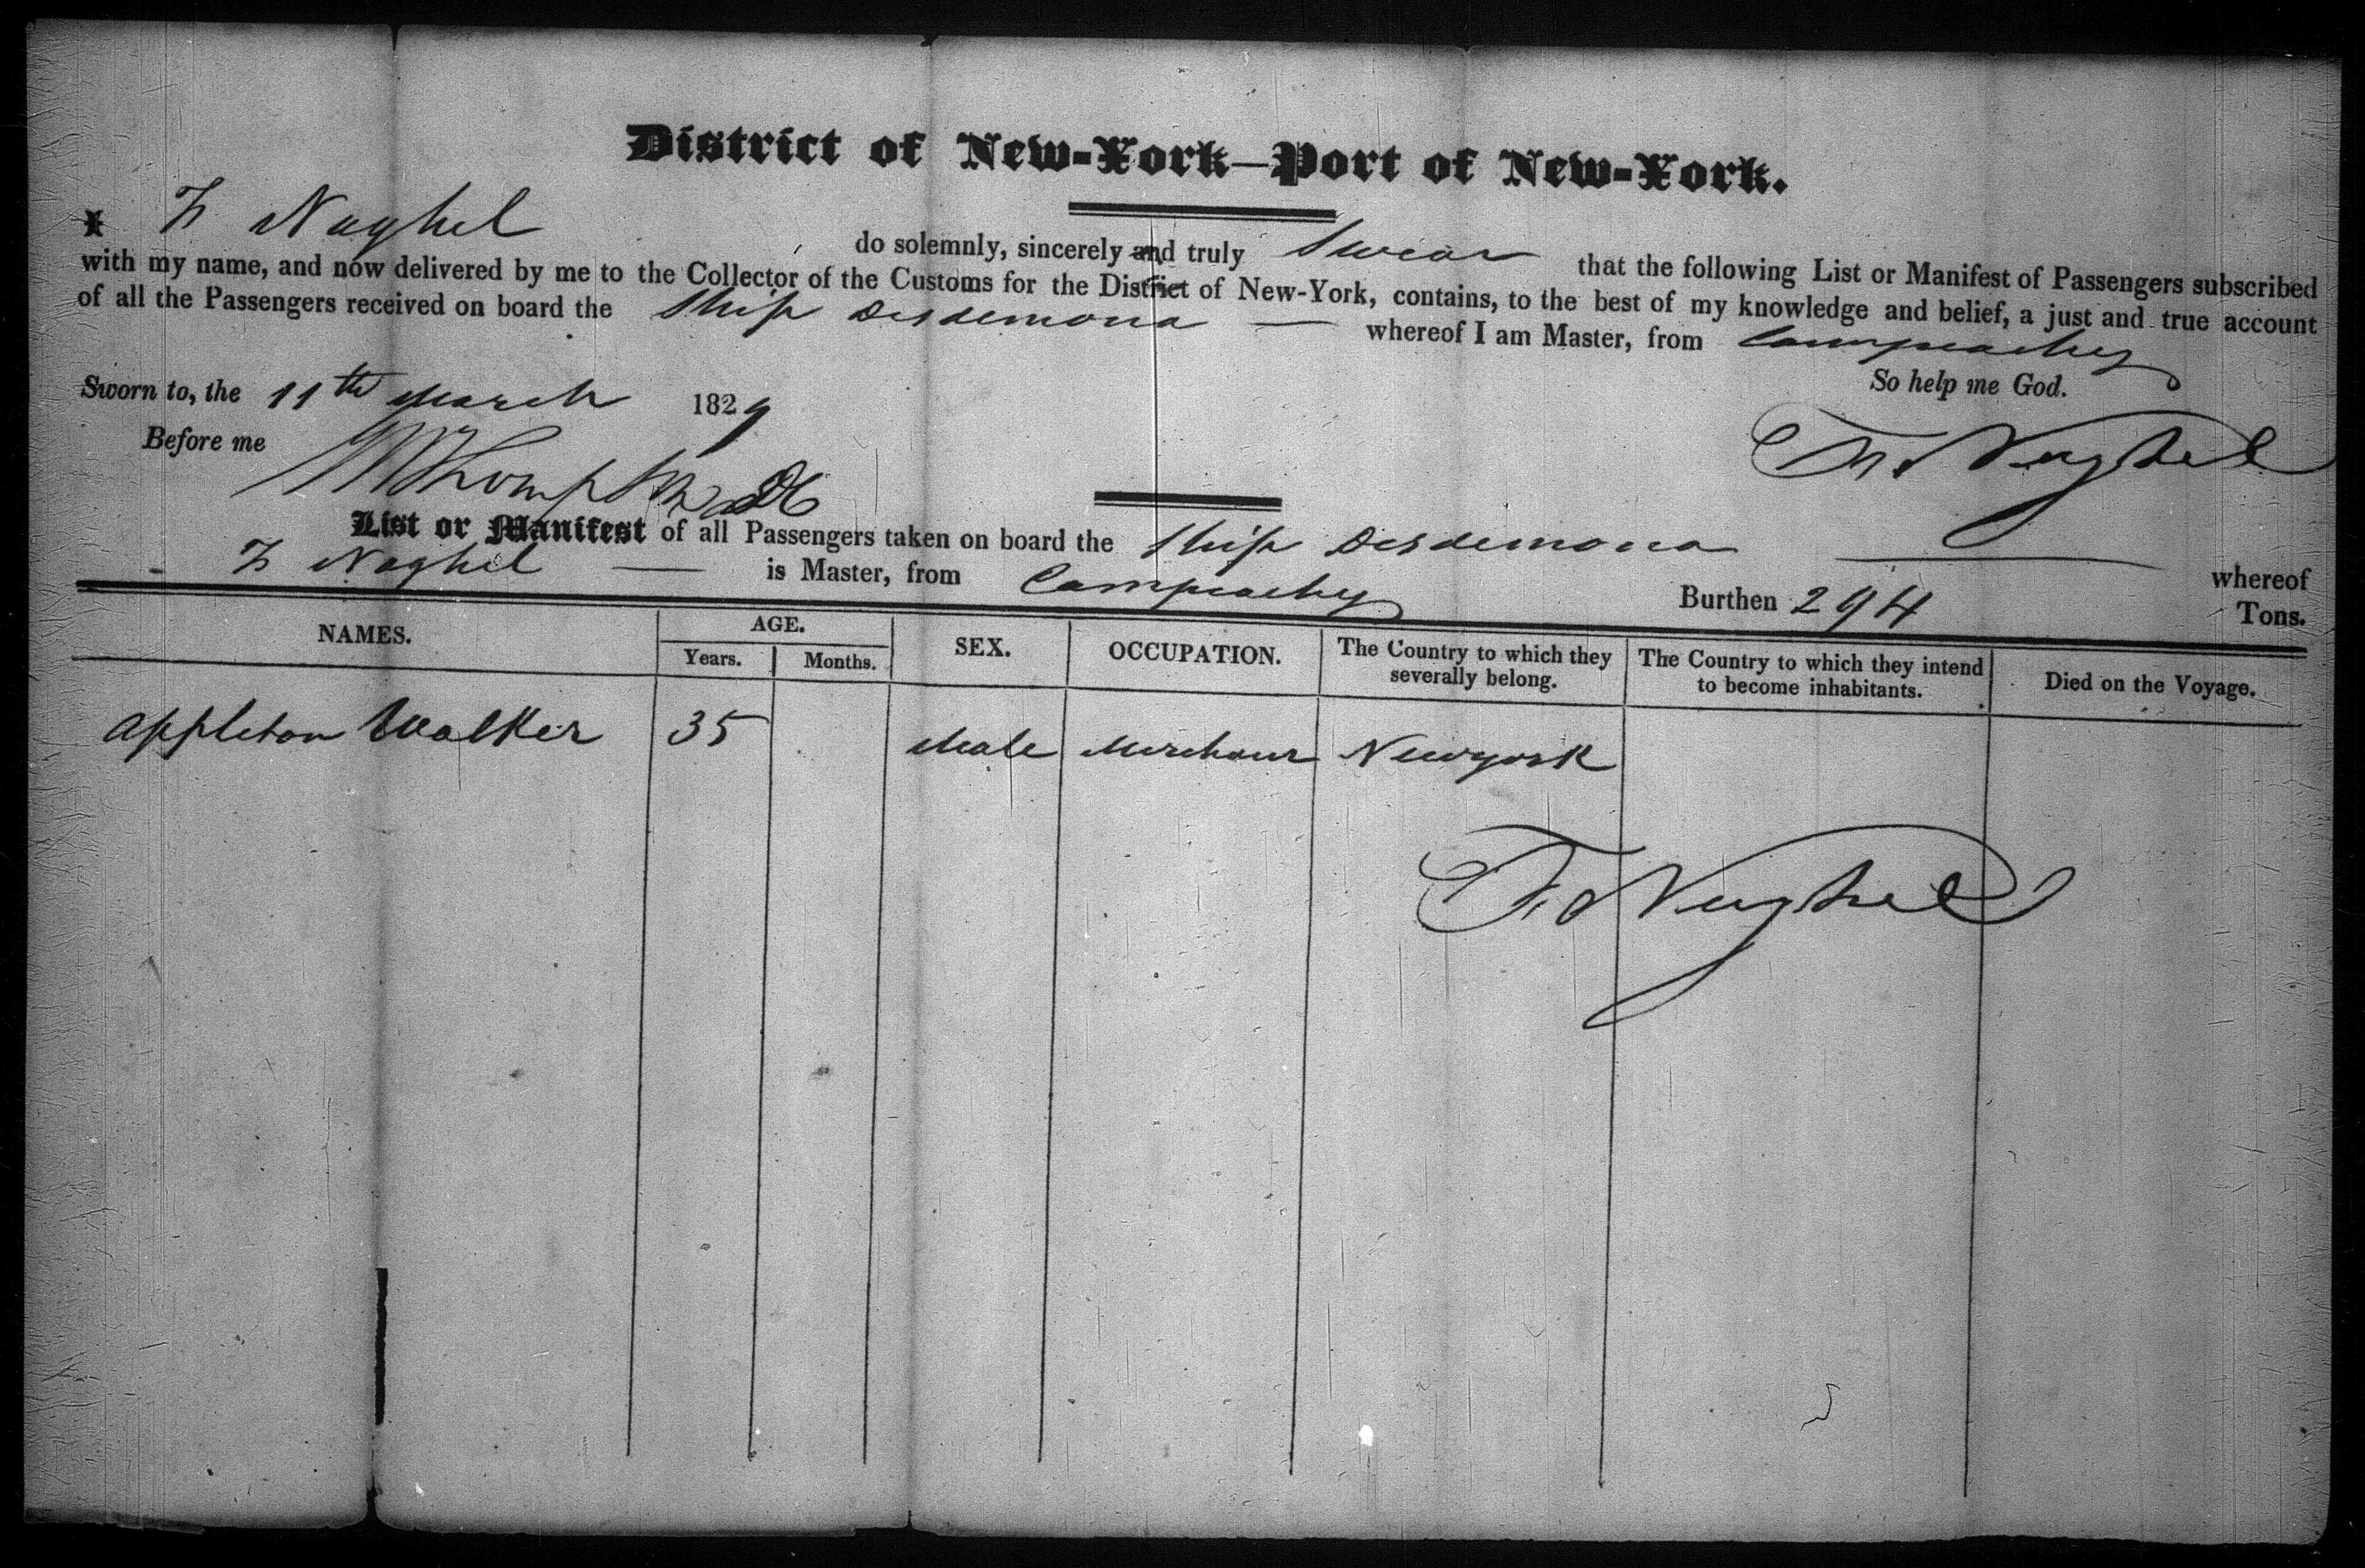 District of New-York—Port of New-York.
I F Naghel do solemnly, sincerely and truly Swear that the following List or Manifest of Passengers subscribed
with my name, and now delivered by me to the Collector of the Customs for the District of New-York, contains, to the best of my knowledge and belief, a just and true account
of all the Passengers received on board the Ship Desdemona — whereof I am Master, from Campeachy
So help me God.
Sworn to, the 11th March 1829
Before me
Naghel
List or Manifest of all Passengers taken on board the Ship Desdemona whereof
F Naghel — is Master, from Campeachy Burthen 294 Tons.
NAMES. AGE. Years. Months. SEX. OCCUPATION. The Country to which they severally belong. The Country to which they intend to become inhabitants. Died on the Voyage.
Appleton Walker 35 Male Merchant Newyork
Naghel